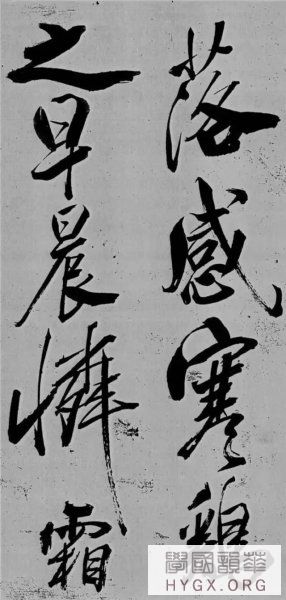 落感寒雞
之早晨憐霜
華韻國學
HYGX.ORG